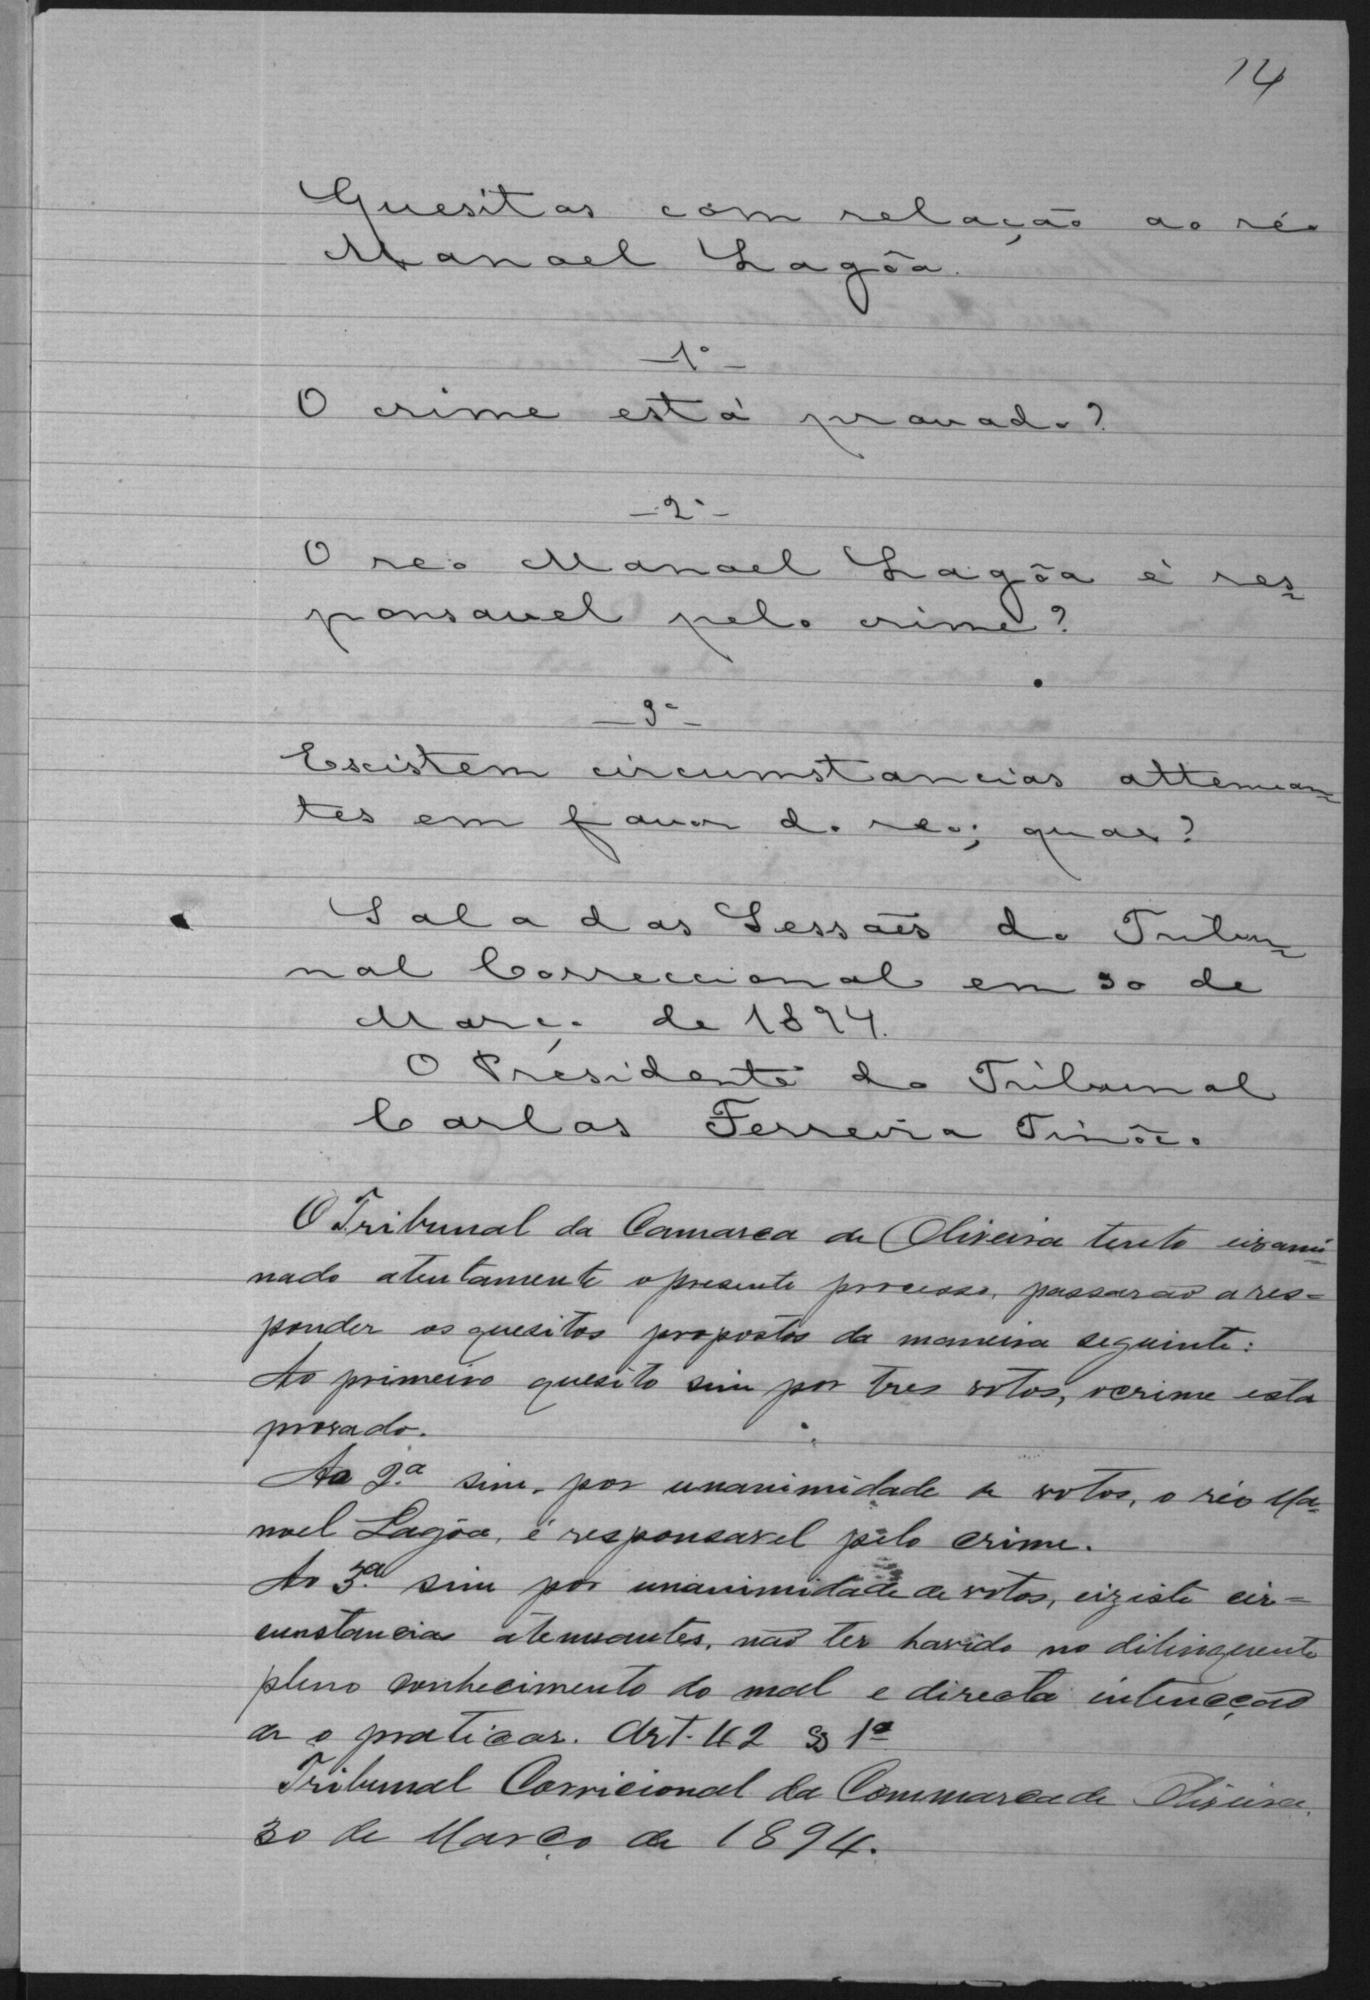 14
Quesitos com relação ao réo
Manoel Lagôa.
—1º—
O crime está provado?
—2º—
O reo Manoel Lagôa é res-
ponsavel pelo crime?
—3º—
Existem circumstancias attenuan-
tes em favor do reo; quaes?
Sala das Sessões do Tribu-
nal Correccional em 30 de
Março de 1894.
O Presidente do Tribunal
Carlos Ferreira Tinôco
O Tribunal da Camarca de Oliveira tendo eixami-
nado atentamente o presente processo, passarão a res=
ponder os quesitos propostos da maneira seguinte:
Ao primeiro quesito sim por tres votos, o crime esta
provado.
Ao 2.ª sim, por unanimidade de votos, o réo Ma-
noel Lagôa, é responsavel pelo crime.
Ao 3.ª sim por unanimidade de votos, eixiste cir=
cunstancias atenuantes, não ter havido no dilinquente
pleno conhecimento do mal e directa intencção
de o praticar. Art. 42 § 1º
Tribunal Corricional da Commarca de Oliveira,
30 de Março de 1894.